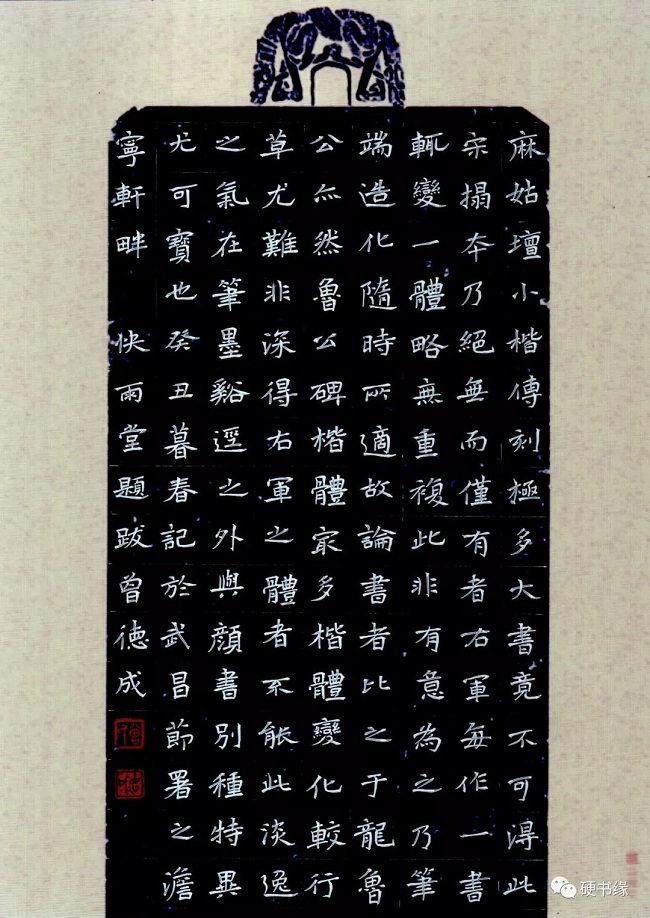 麻姑壇小楷傳刻極多大書竟不可得此
宋搨本乃絕無而僅有者右軍每作一書
輒變一體略無重複此非有意為之乃筆
端造化隨時所適故論書者比之于龍魯
公亦然魯公碑楷體家多楷體變化較行
草尤難非深得右軍之體者不能此淡逸
之氣在筆墨谿逕之外與顏書別種特異
尤可寶也癸丑暮春記於武昌節署之澹
寧軒畔 快雨堂題跋曾德成
硬书缘